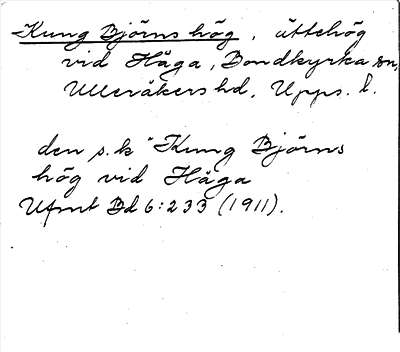 Kung Björns hög, ättehög
vid Håga, Bondkyrka sn,
Ulleråkers hd, Upps. l.
den s.k "Kung Björns
hög vid Håga
Ufmt Bd 6:233 (1911).